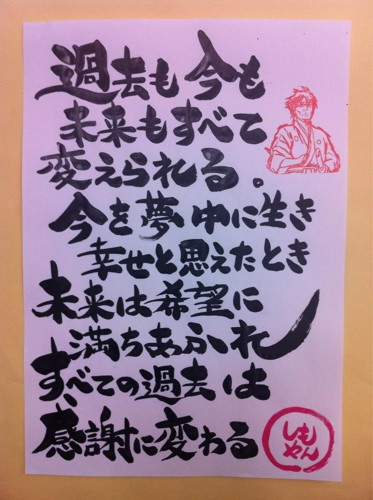 過去も今も
未来もすべて
変えられる。
今を夢中に生き
幸せと思えたとき
未来は希望に
満ちあふれ
すべての過去は
感謝に変わる
しもやん